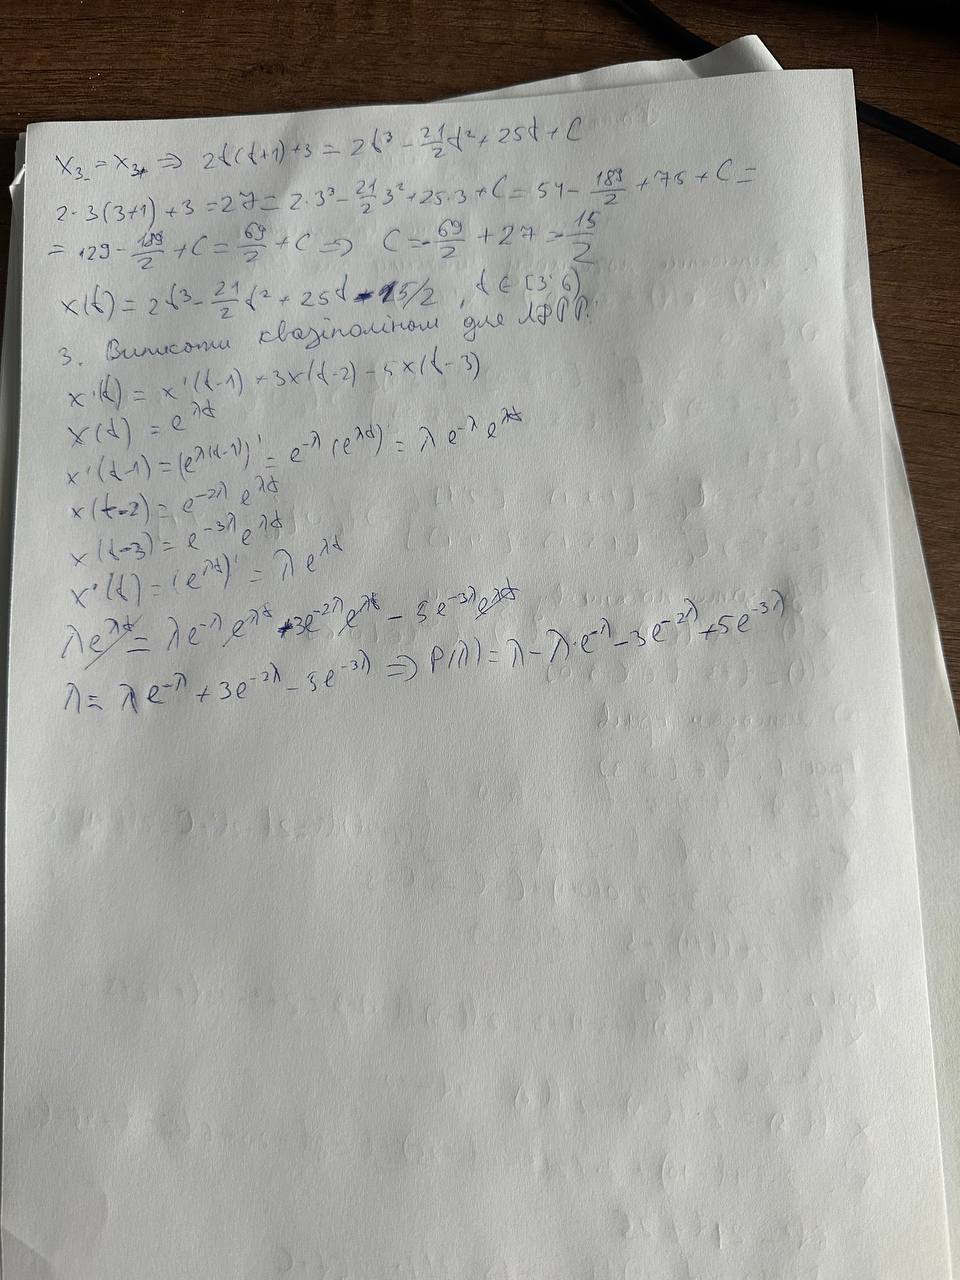 x₃₋ = x₃₊ ⇒ 2t(t+1)+3 = 2t³ - 21/2 t² + 25t + C
2·3(3+1)+3 = 27 = 2·3³ - 21/2 3² + 25·3 + C = 54 - 189/2 + 75 + C =
= 129 - 189/2 + C = 69/2 + C ⇒ C = -69/2 + 27 = 15/2
x(t) = 2t³ - 21/2 t² + 25t - 15/2, t ∈ [3; 6)
3. Виписати квазіполіном для ЛДРР:
x'(t) = x'(t-1) + 3x(t-2) - 5x(t-3)
x(t) = e^{λt}
x'(t-1) = (e^{λ(t-1)})' = e^{-λ} (e^{λt})' = λ e^{-λ} e^{λt}
x(t-2) = e^{-2λ} e^{λt}
x(t-3) = e^{-3λ} e^{λt}
x'(t) = (e^{λt})' = λ e^{λt}
λe^{λt} = λe^{-λ} e^{λt} + 3e^{-2λ} e^{λt} - 5e^{-3λ} e^{λt}
λ = λe^{-λ} + 3e^{-2λ} - 5e^{-3λ} ⇒ P(λ) = λ - λ·e^{-λ} - 3e^{-2λ} + 5e^{-3λ}